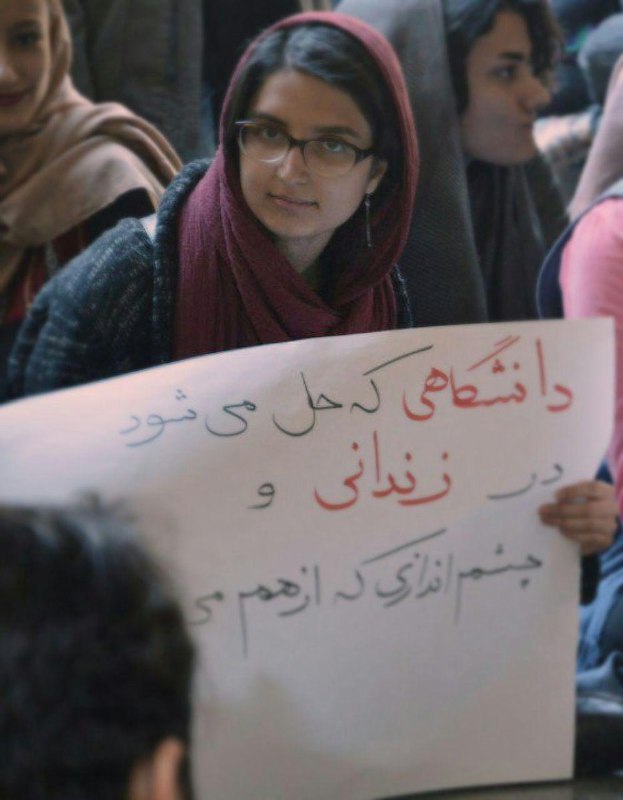 دانشگاهی که حل می شود
در زندانی و
چشم اندازی که از هم می